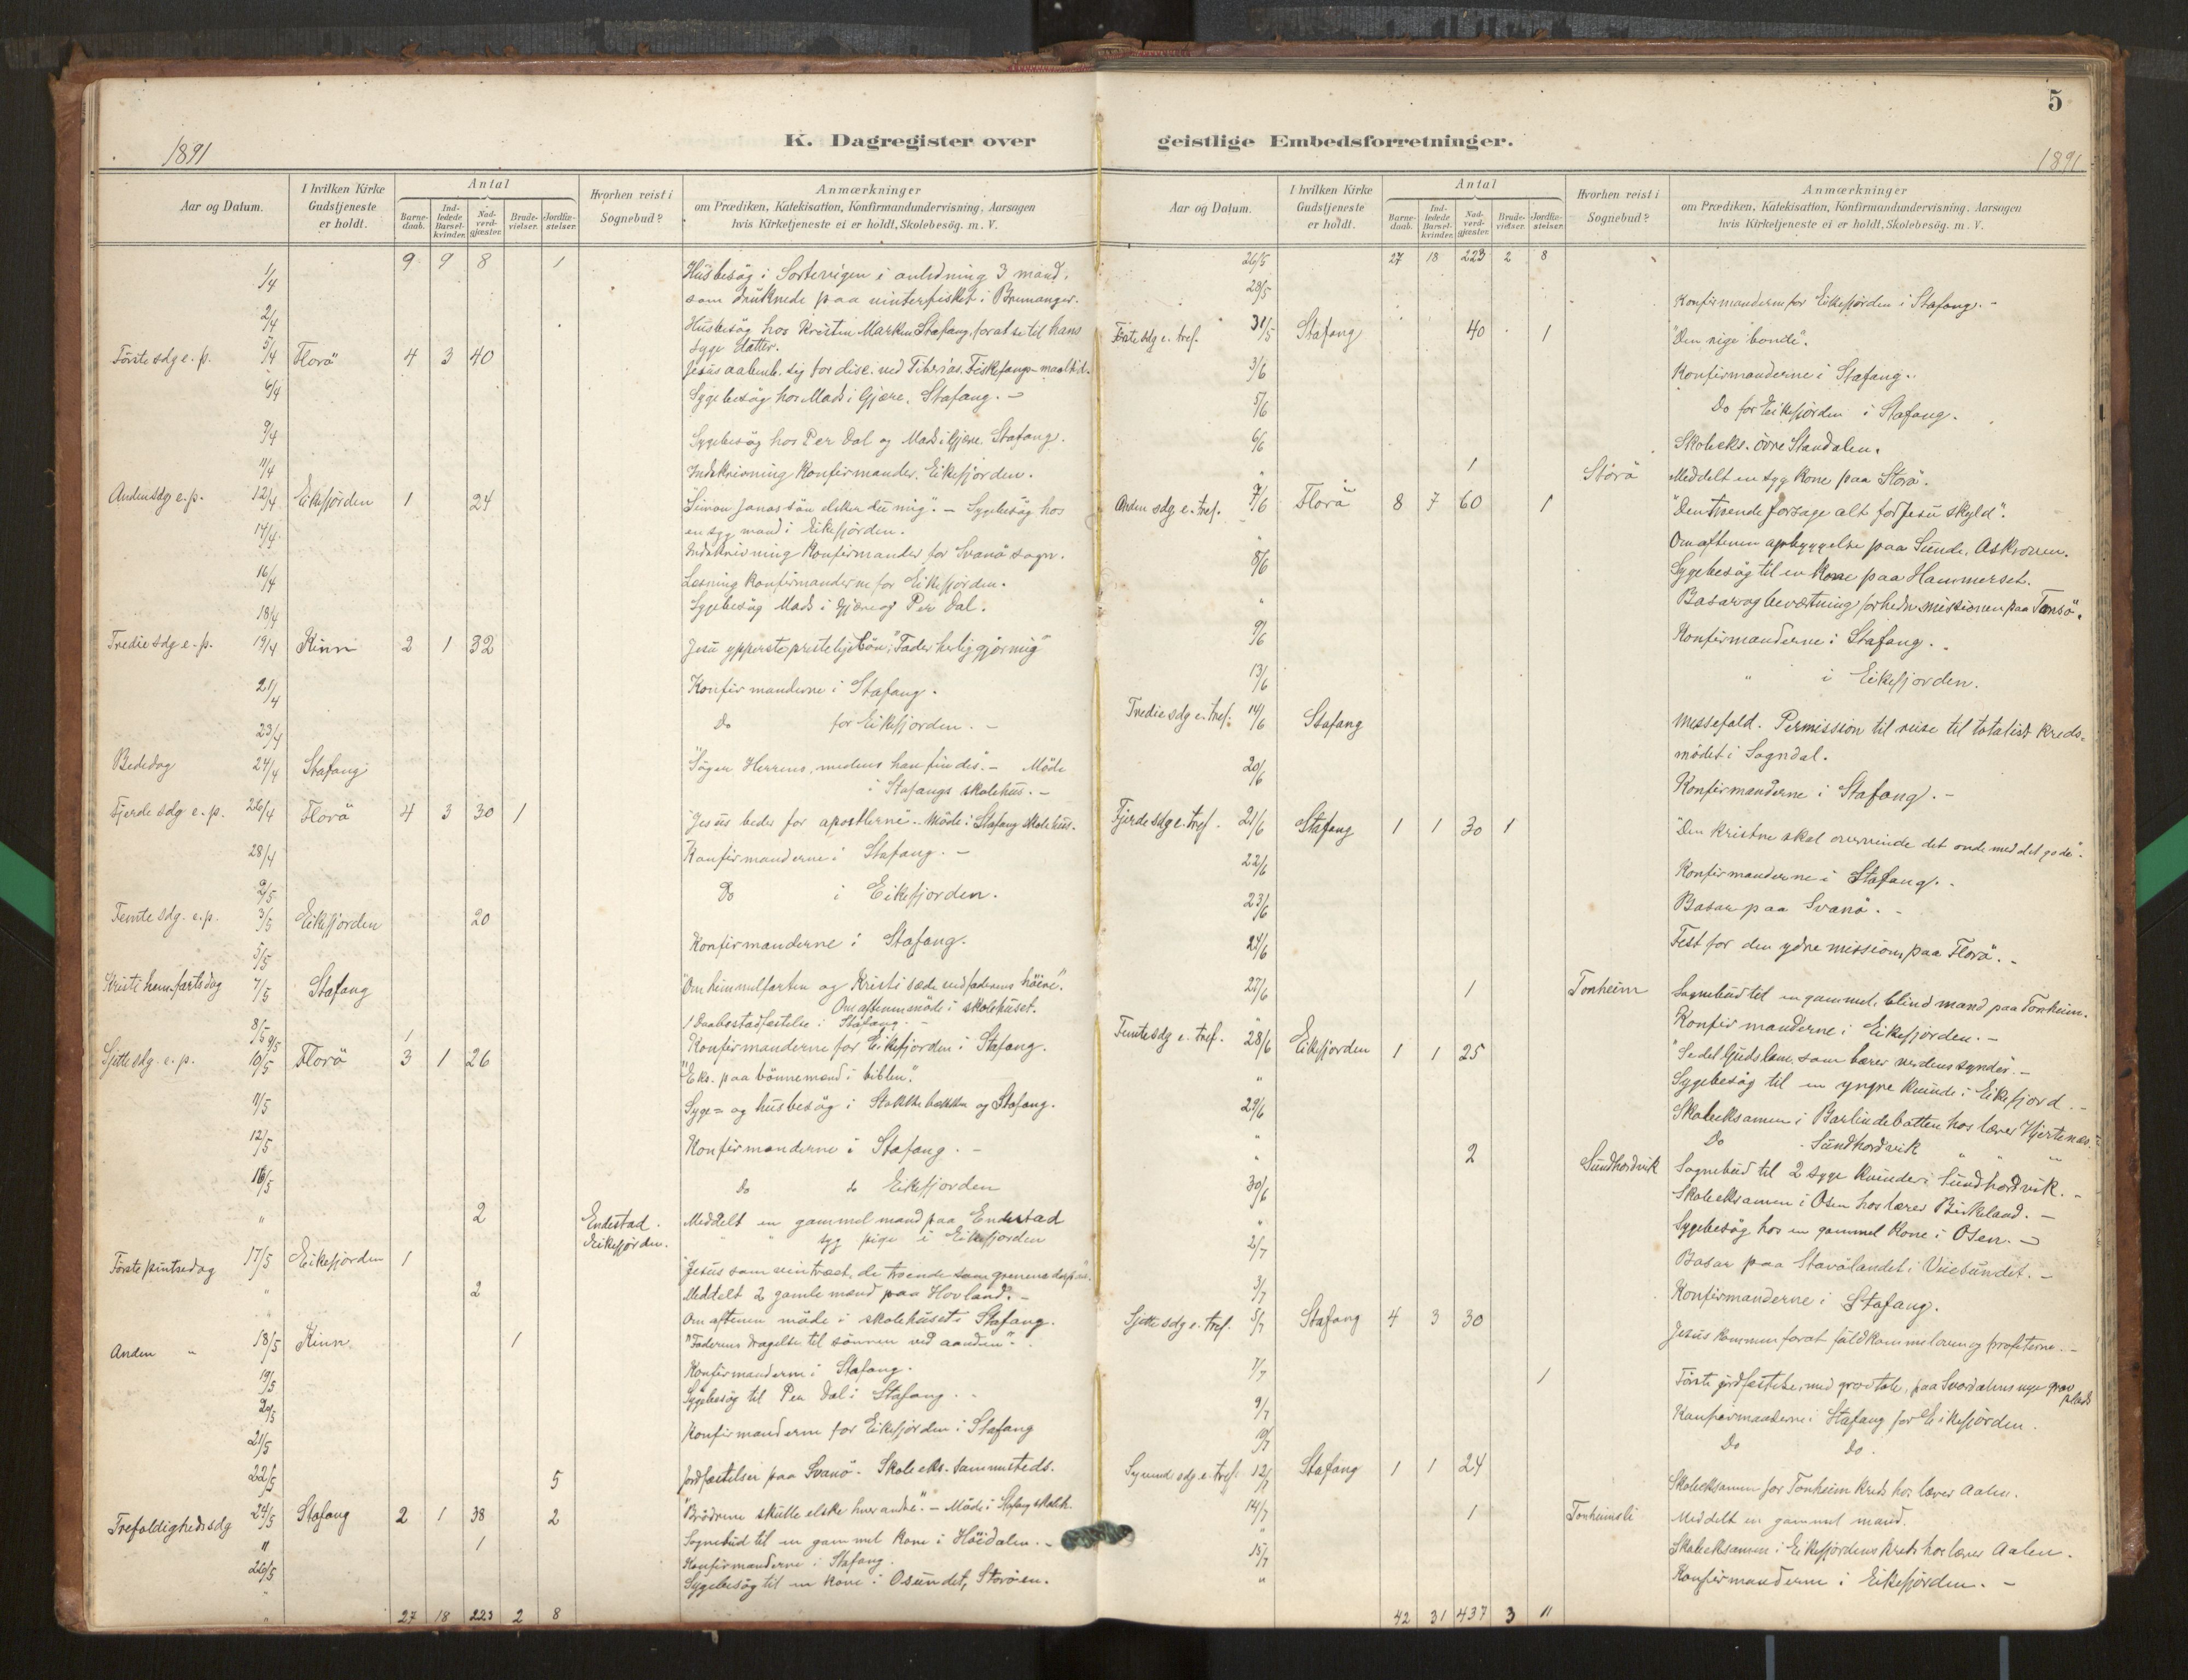 5
1891
K. Dagregister over geistlige Embedsforretninger.
1891
Aar og Datum.
I hvilken Kirke Gudstjeneste er holdt.
Antal
Barne-daab.
Ind-ledede Barsel-kvinder.
Nad-verd-gjæster.
Brude-vielser.
Jordfæ-stelser.
Hvorhen reist i Sognebud?
Anmærkninger
om Prædiken, Katekisation, Konfirmandundervisning, Aarsagen
hvis Kirketjeneste ei er holdt, Skolebesög. m. V.
9 9 8 1
1/4 Husbesög i Sortevigen i anledning 3 mand,
som druknede paa vinterfisket i Bremanger.
2/4 Husbesög hos Kristen Marken Stafang, forat se til hans
syge datter.
Förste sdg e. p. 5/4 Florö 4 3 40 Jesus aabenb. sig for disc. ved Tiberias. Fiskefangst-maaltid.
6/4 Sygebesög hos Mads i Gjære, Stafang. -
9/4 Sygebesög hos Per Dal og Mads i Gjære Stafang.
11/4 Indskrivning Konfirmander. Eikefjorden.
Anden sdg e. p. 12/4 Eikefjorden 1 24 "Simon Jonassön elsker du mig". - Sygebesög hos
en syg mand i Eikefjorden.
14/4 Indskrivning Konfirmander for Svanö sogn.
16/4 Læsning konfirmanderne for Eikefjorden.
18/4 Sygebesög Mads i Gjære og Per Dal.
Tredie sdg e. p. 19/4 Kinn 2 1 32 Jesu ypperstepresteligebön: "Fader herliggjör mig"
21/4 Konfirmanderne i Stafang.
23/4 Do for Eikefjorden. -
Bededag 24/4 Stafang "Söger Herren, medens han findes". - Möde
i Stafangs skolehus. -
Fjerde sdg e. p. 26/4 Florö 4 3 30 1 "Jesus beder for apostlerne". - Möde i Stafang skolehus.
28/4 Konfirmanderne i Stafang. -
2/5 Do i Eikefjorden.
Femte sdg. e. p. 3/5 Eikefjorden 20
5/5 Konfirmanderne i Stafang.
Kristi himmelfartsdag 7/5 Stafang "Om himmelfarten og Kristi sæde ved faderens höire".
Om aftenen möde i skolehuset.
1 Daabsstadfæstelse i Stafang. -
8/5 9/5 1 Konfirmanderne for Eikefjorden i Stafang.
Sjette sdg. e. p. 10/5 Florö 3 1 26 "Eks. paa bönnemænd i biblen".
11/5 Syge- og husbesög i Stokkebækken og Stafang.
12/5 Konfirmanderne i Stafang. -
16/5 Do do Eikefjorden
" 2 Endestad. Meddelt en gammel mand paa Endestad
Eikefjorden. " " syg pige i Eikefjorden
Förste pintsedag 17/5 Eikefjorden 1 "Jesus som vintræet, de troende som grenene derpaa".
" 2 Meddelt 2 gamle mænd paa Hovland. -
" Om aftenen möde i skolehuset i Stafang.
Anden " 18/5 Kinn 1 "Faderens dragelse til sönnen ved aanden". -
19/5 Konfirmanderne i Stafang.
20/5 Sygebesög til Per Dal i Stafang. -
21/5 Konfirmanderne for Eikefjorden i Stafang
22/5 5 Jordfæstelser paa Svanö. Skoleeks. sammesteds.
Trefoldighedssdg 24/5 Stafang 2 1 38 2 "Brödrene skulle elske hverandre". - Möde i Stafang skoleh.
" 1 Sognebud til en gammel kone i Höidalen. -
26/5 Konfirmanderne i Stafang.
" Sygebesög til en kone i Osundet, Storöen.
" 27 18 223 2 8
Aar og Datum.
I hvilken Kirke Gudstjeneste er holdt.
Antal
Barne-daab.
Ind-ledede Barsel-kvinder.
Nad-verd-gjæster.
Brude-vielser.
Jordfæ-stelser.
Hvorhen reist i Sognebud?
Anmærkninger
om Prædiken, Katekisation, Konfirmandundervisning, Aarsagen
hvis Kirketjeneste ei er holdt, Skolebesög. m. V.
26/5 27 18 223 2 8
28/5 Konfirmanderne for Eikefjorden i Stafang. -
Förste sdg e. tref. 31/5 Stafang 40 1 "Den rige bonde".
3/6 Konfirmanderne i Stafang.
5/6 Do for Eikefjorden i Stafang.
6/6 Skoleeks. övre Standalen.
" 1 Storö Meddelt en syg kone paa Storö.
Anden sdg. e. tref. 7/6 Florö 8 7 60 1 "Den troende forsage alt for Jesu skyld".
" Om aftenen opbyggelse paa Sunde, Askroven.
8/6 Sygebesög til en kone paa Hammerset.
" Basar og bevertning for hedn. missionen paa Tansö.
9/6 Konfirmanderne i Stafang.
13/6 " i Eikefjorden.
Tredie sdg e. tref. 14/6 Stafang Messefald. Permission til reise til totalist kreds-
mödet i Sogndal.
20/6 Konfirmanderne i Stafang. -
Fjerde sdg e. tref. 21/6 Stafang 1 1 30 1 "Den kristne skal overvinde det onde med det gode".
22/6 Konfirmanderne i Stafang.
23/6 Basar paa Svanö. -
24/6 Fest for den ydre mission, paa Florö. -
27/6 1 Tonheim Sognebud til en gammel, blind mand paa Tonheim.
" Konfirmanderne i Eikefjorden. -
Femte sdg e. tref. 28/6 Eikefjorden 1 1 25 "Se det Guds lam, som bærer verdens synder". -
" Sygebesög til en yngre kvinde i Eikefjord. -
29/6 Skoleeksamen i Barlindebotten hos lærer Hjertenæs.
" Do Sundhordvik " "
" 2 Sundhordvik Sognebud til 2 syge kvinder i Sundhordvik. -
30/6 Skoleeksamen i Osen hos lærer Birkeland. -
" Sygebesög hos en gammel kone i Osen. -
2/7 Basar paa Stavölandet i Viiesundet. -
3/7 Konfirmanderne i Stafang.
Sjette sdg e. tref. 5/7 Stafang 4 3 30 Jesus kommen forat fuldkomme loven og profeterne. -
7/7 1 Förste jordfæstelse, med gravtale, paa Svordalens nye grav
plads
9/7 Konfirmanderne i Stafang for Eikefjorden.
10/7 Do Do.
Syvende sdg e. tref. 12/7 Stafang 1 1 24
14/7 Skoleeksamen for Tonheim Kreds hos lærer Aalen.
1 Tonheimsli Meddelt en gammel mand.
15/7 Skoleeksamen i Eikefjordens kreds hos lærer Aalen.
" Konfirmanderne i Eikefjorden. -
42 31 437 3 11